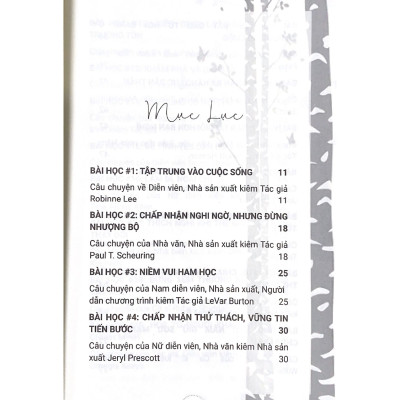 Mục Lục
BÀI HỌC #1: TẬP TRUNG VÀO CUỘC SỐNG 11
Câu chuyện về Diễn viên, Nhà sản xuất kiêm Tác giả
Robinne Lee 11
BÀI HỌC #2: CHẤP NHẬN NGHI NGỜ, NHƯNG ĐỪNG
NHƯỢNG BỘ 18
Câu chuyện của Nhà văn, Nhà sản xuất kiêm Tác giả
Paul T. Scheuring 18
BÀI HỌC #3: NIỀM VUI HAM HỌC 25
Câu chuyện của Nam diễn viên, Nhà sản xuất, Người
dẫn chương trình kiêm Tác giả LeVar Burton 25
BÀI HỌC #4: CHẤP NHẬN THỬ THÁCH, VỮNG TIN
TIẾN BƯỚC 30
Câu chuyện của Nữ diễn viên, Nhà văn kiêm Nhà sản
xuất Jeryl Prescott 30